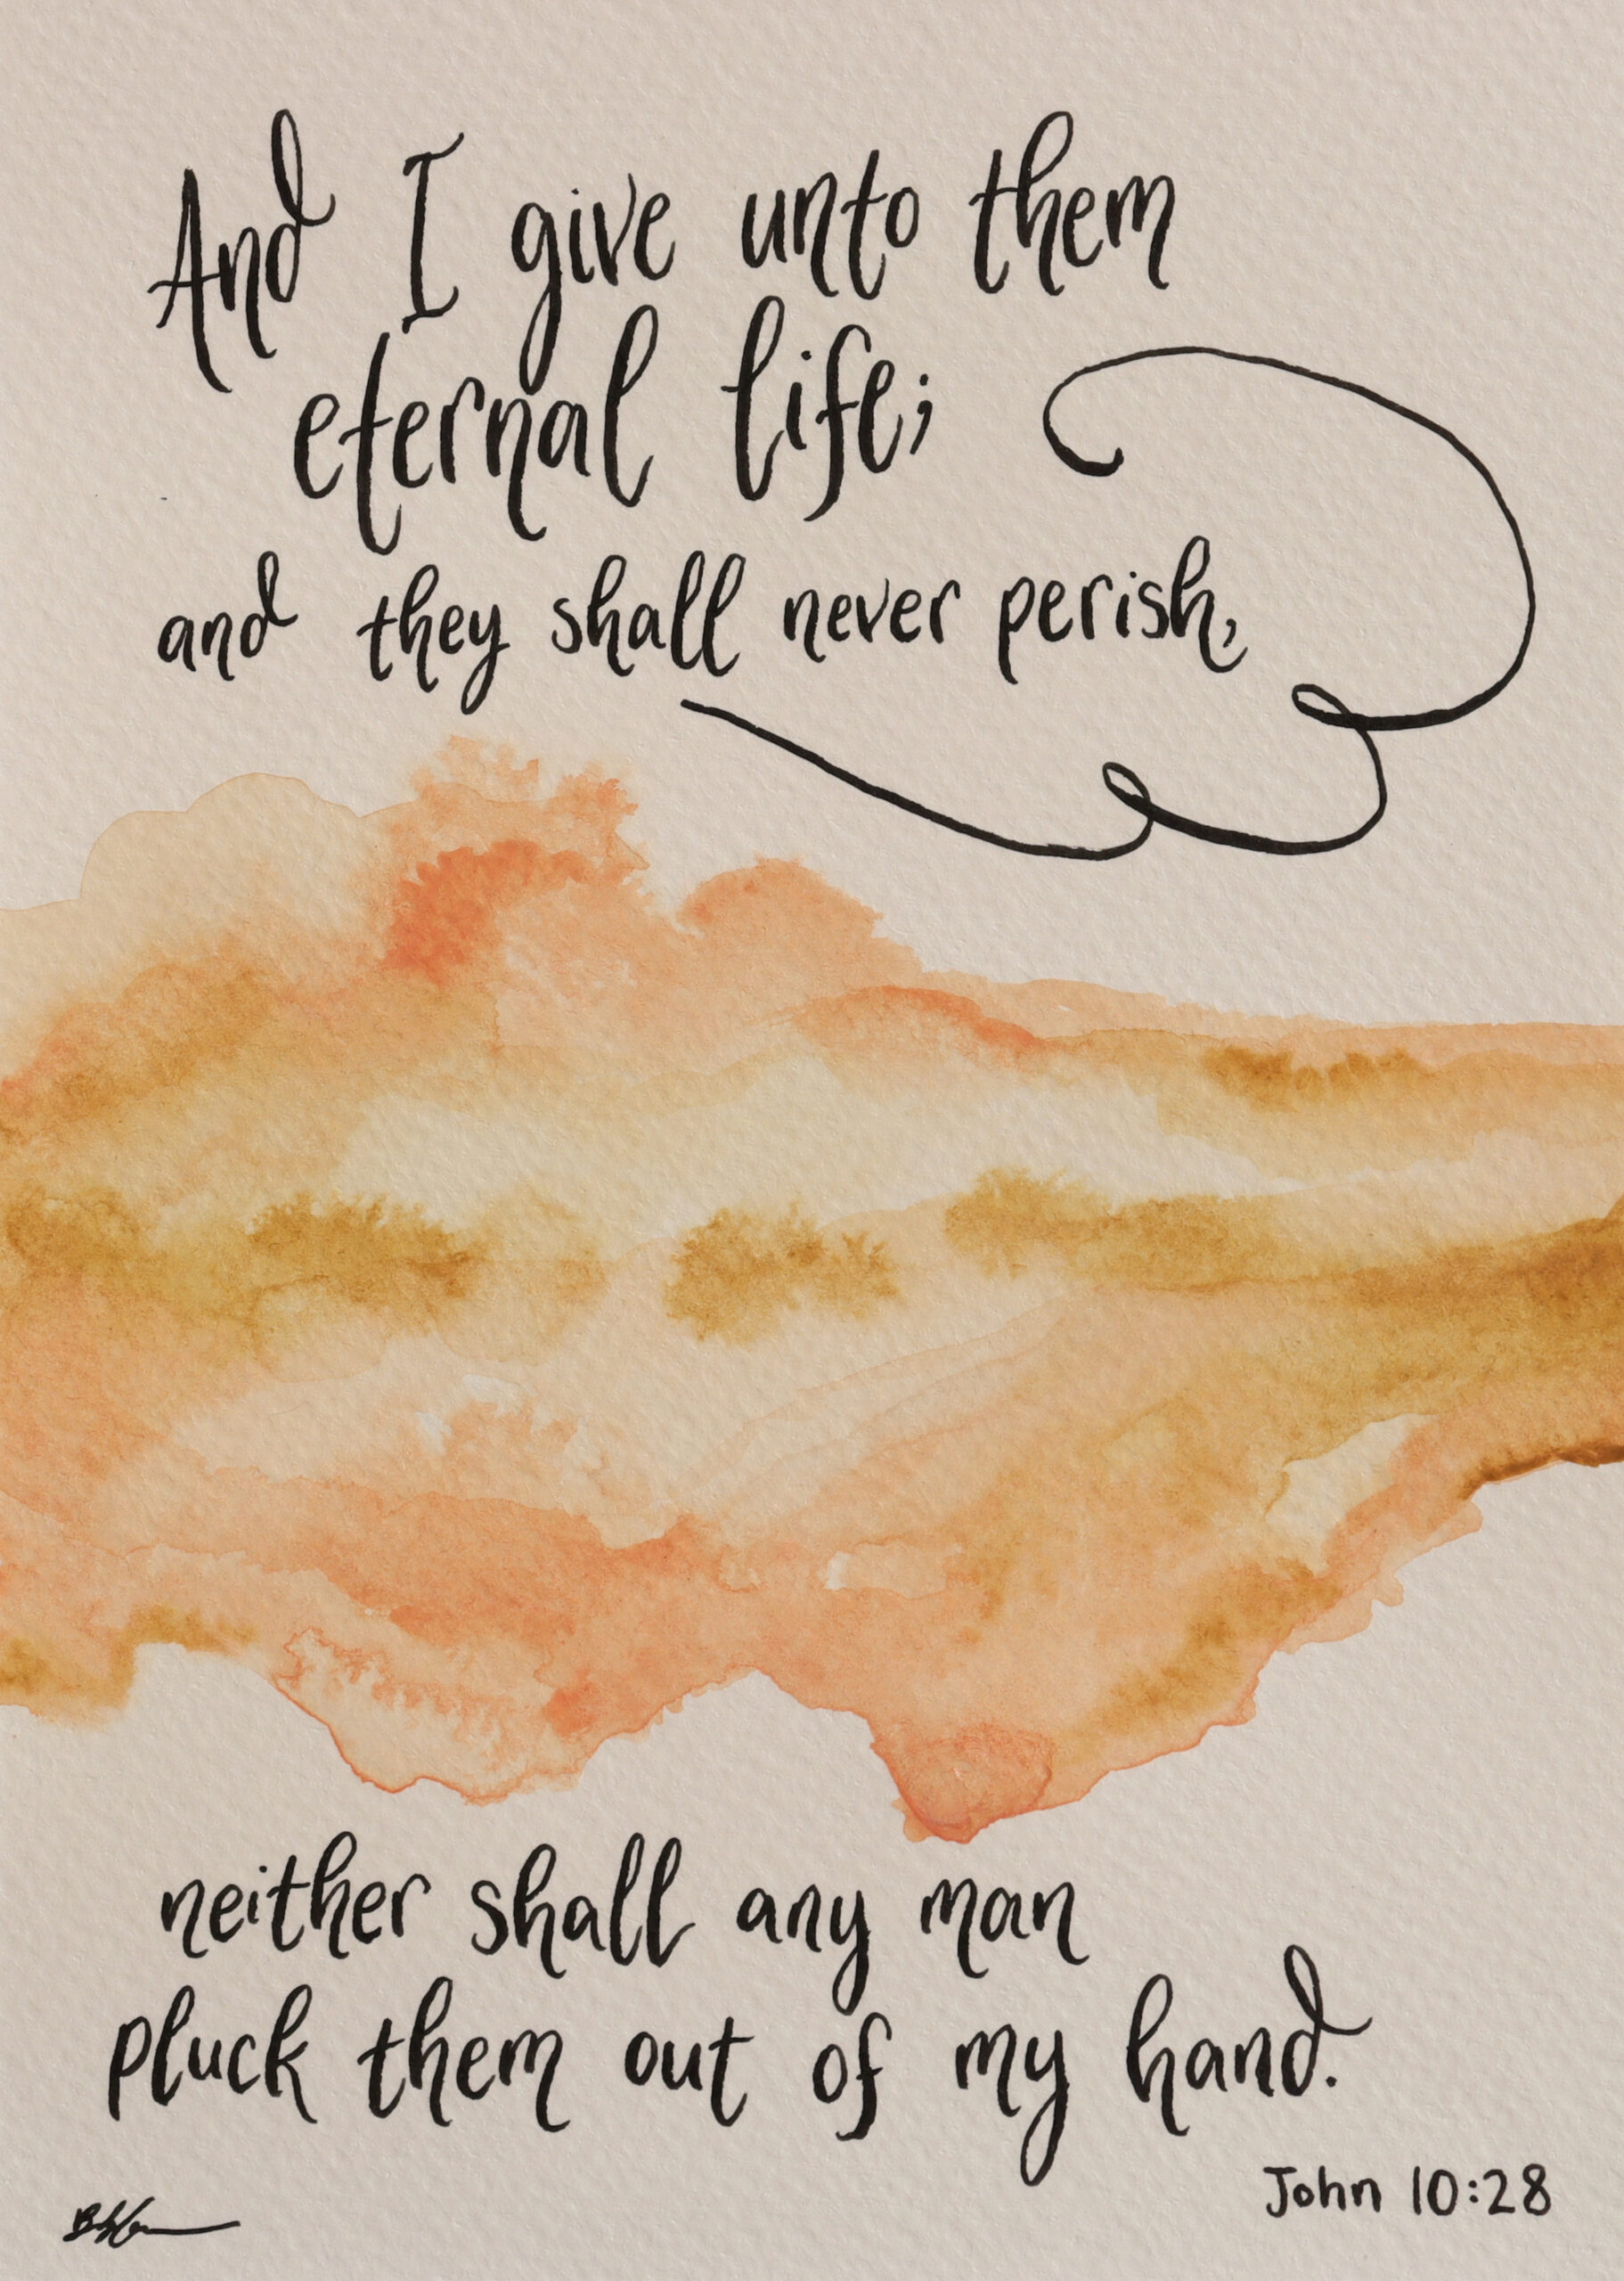 And I give unto them
eternal life;
and they shall never perish,
neither shall any man
pluck them out of my hand.
John 10:28